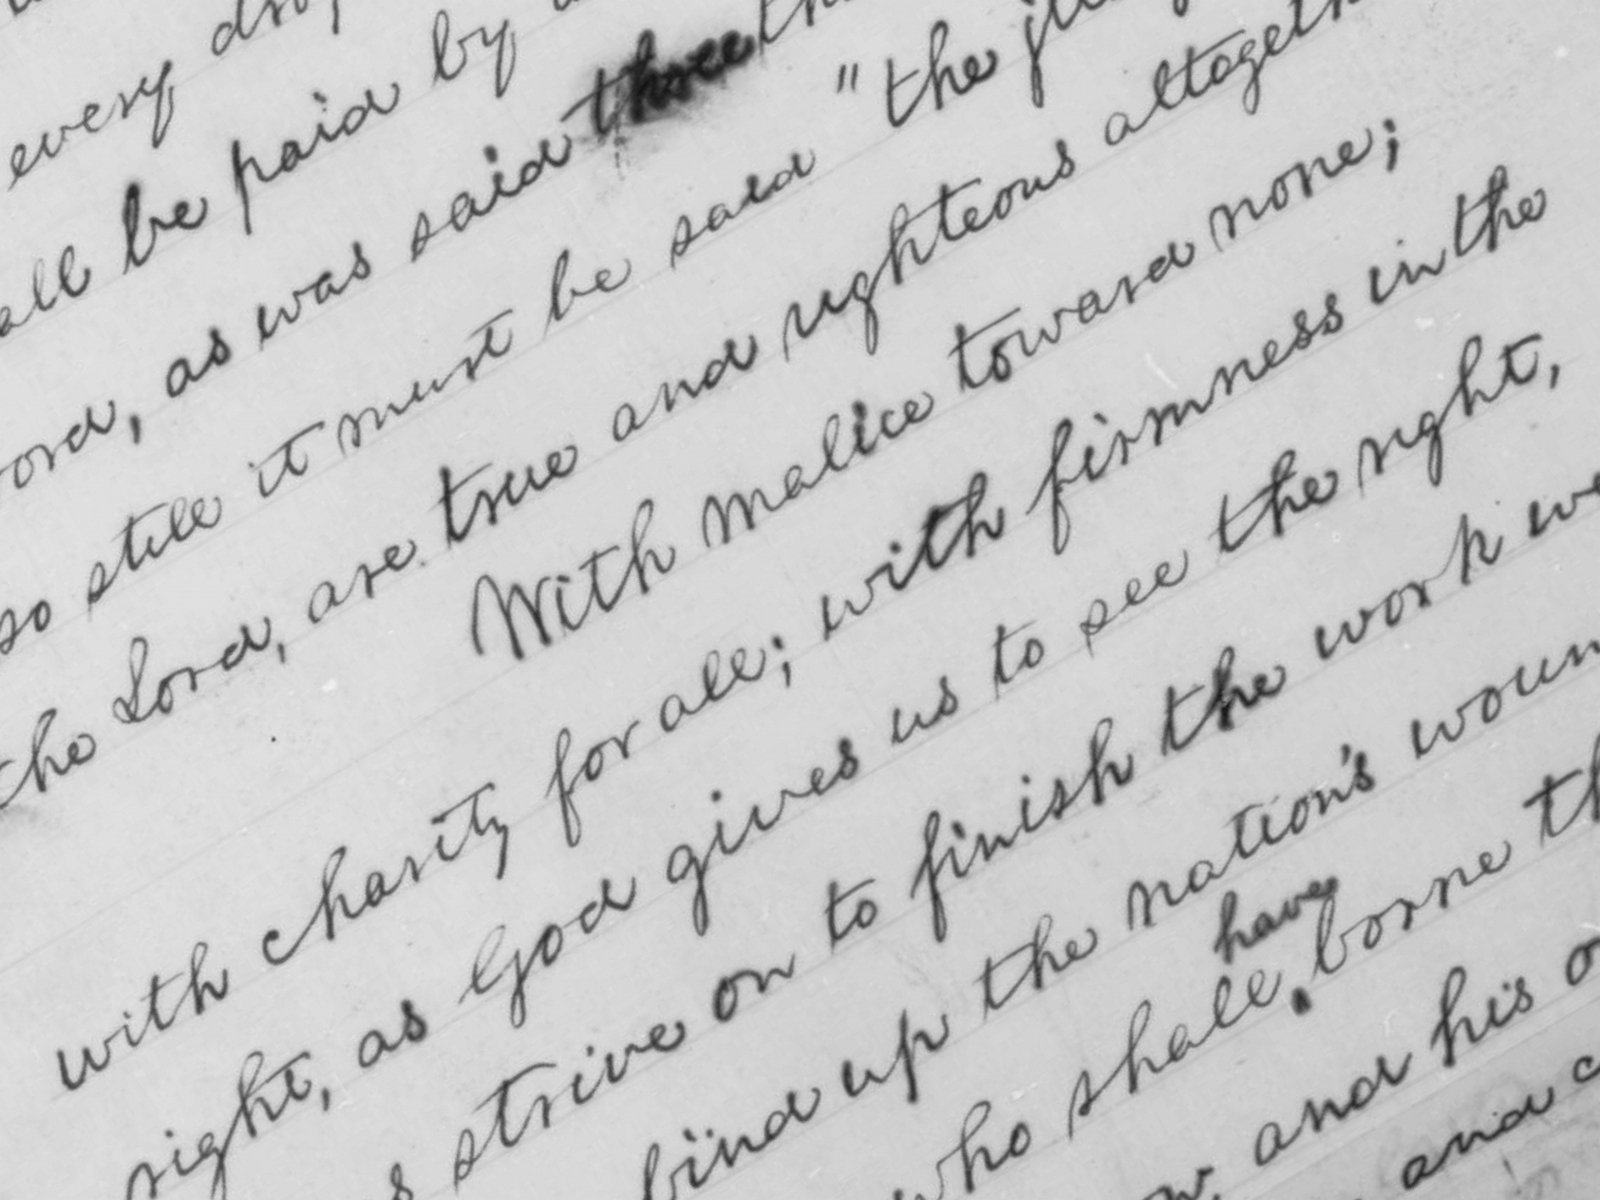 every
all be paid by
as was said three
so still it must be said "the
the Lord, are true and righteous
With malice toward none;
with charity for all; with firmness in the
right, as God gives us to see the right,
strive on to finish the work we
bind up the nation's
have
who shall borne
and his
and